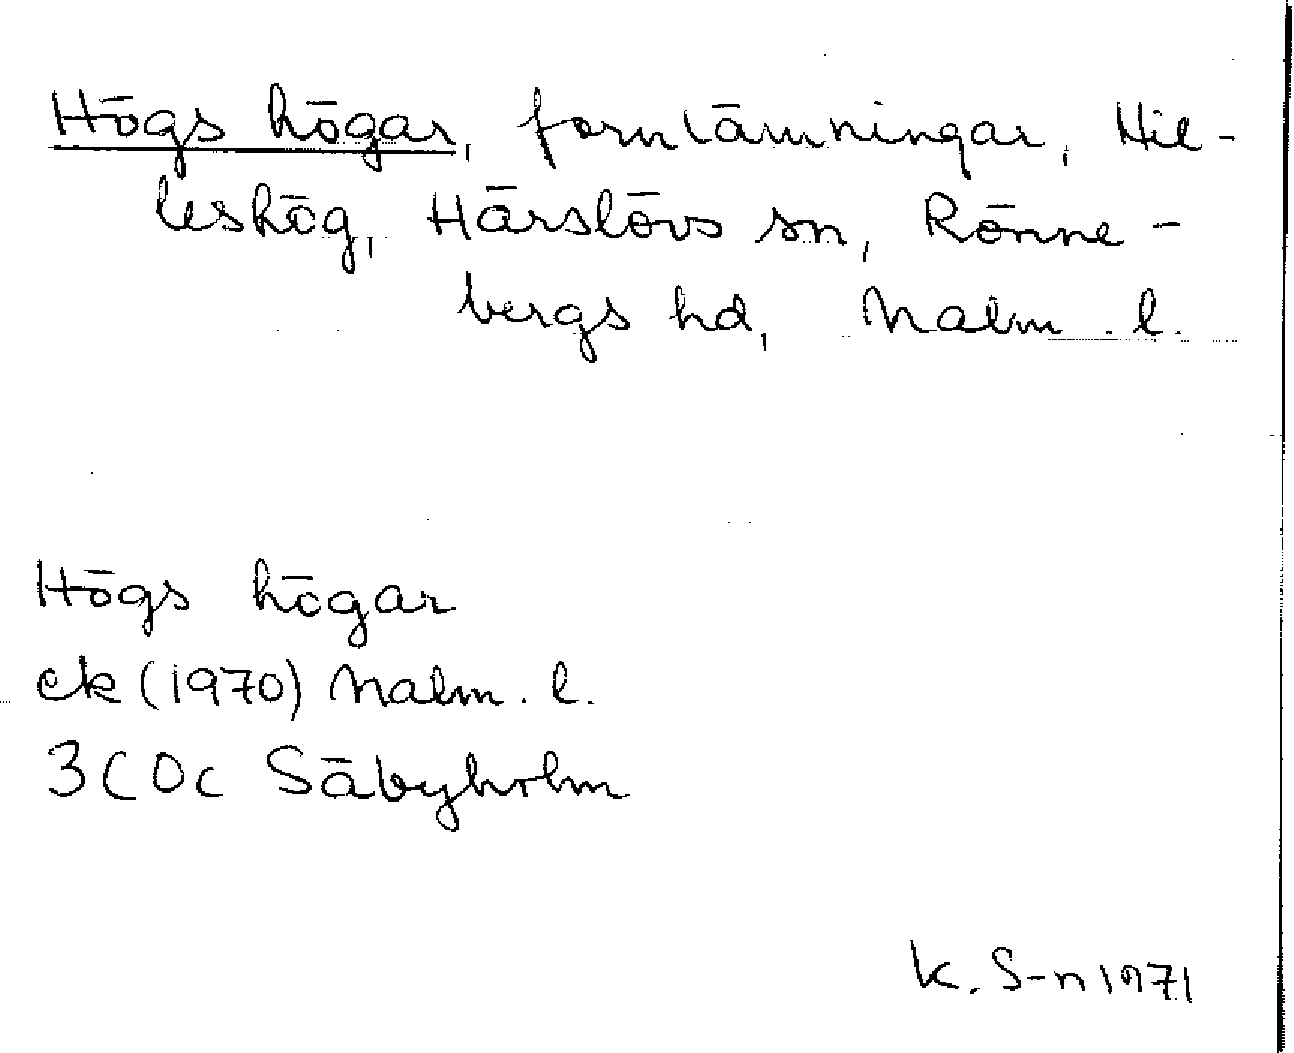 Högs högar, fornlämningar, Hil-
leshög, Härslövs sn, Rönne-
bergs hd, Malm. l.
Högs högar
ek (1970) Malm. l.
3C0c Säbyholm
K. S-n 1971